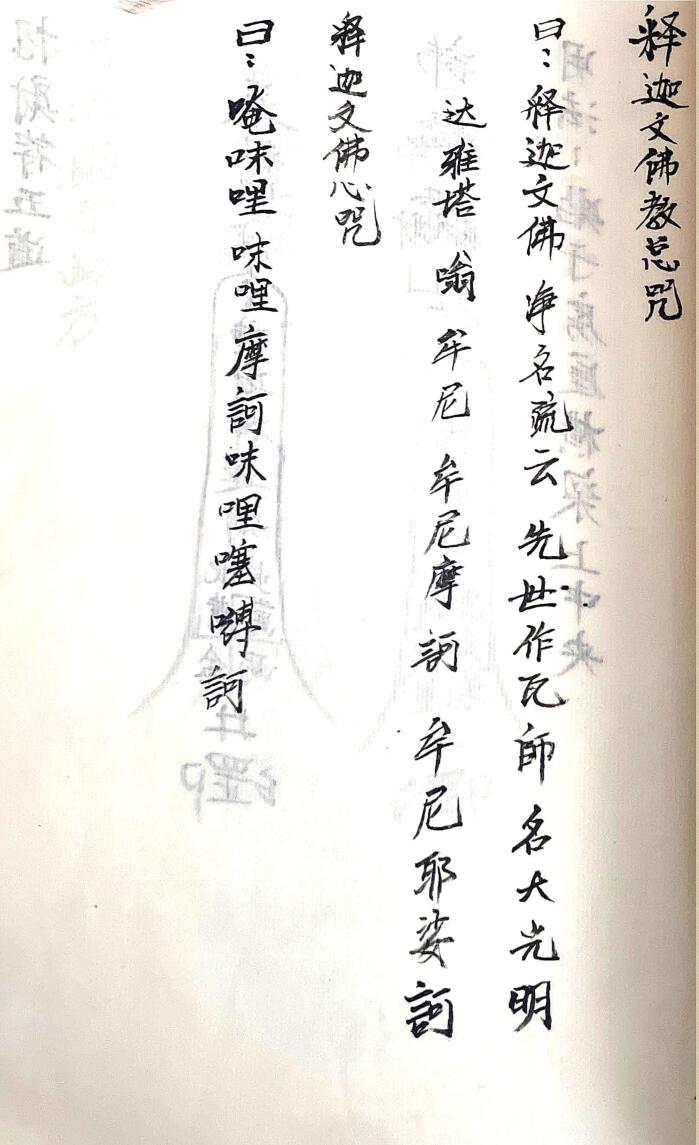 释迦文佛教总咒
曰：释迦文佛 净名疏云 先世作瓦師 名大光明
达雅塔 嗡 牟尼 牟尼摩訶 牟尼耶娑訶
释迦文佛心咒
曰：唵味哩 味哩摩訶味哩噻嚩訶